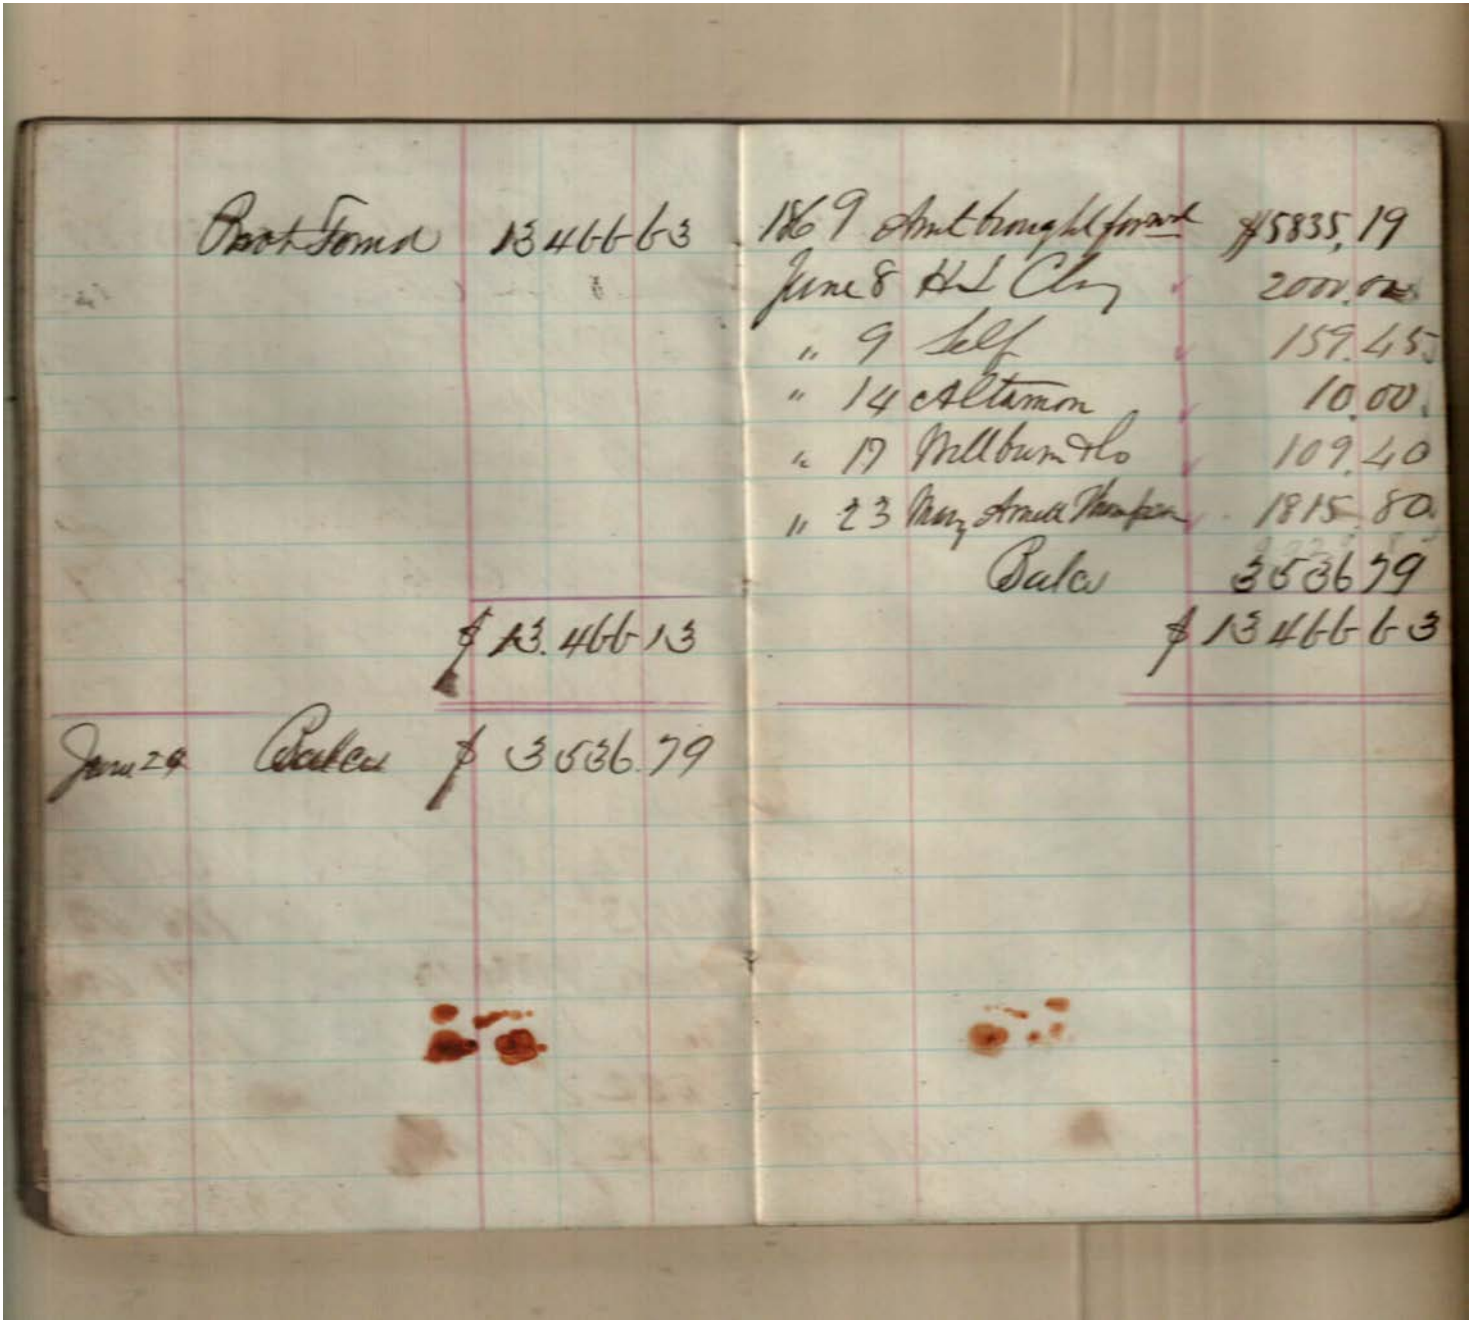 Forwd 13466 63
$ 13.466 13
June 29 Balce $ 3536.79
1869 Amt brought forwd $5835,19
June 8 H L Clay 2000.00
" 9 Self 159.45
" 14 Altamon 10.00
" 17 Millburn & Co 109.40
" 23 Mary Thompson 1815.80
Balce 353679
$ 13466 63